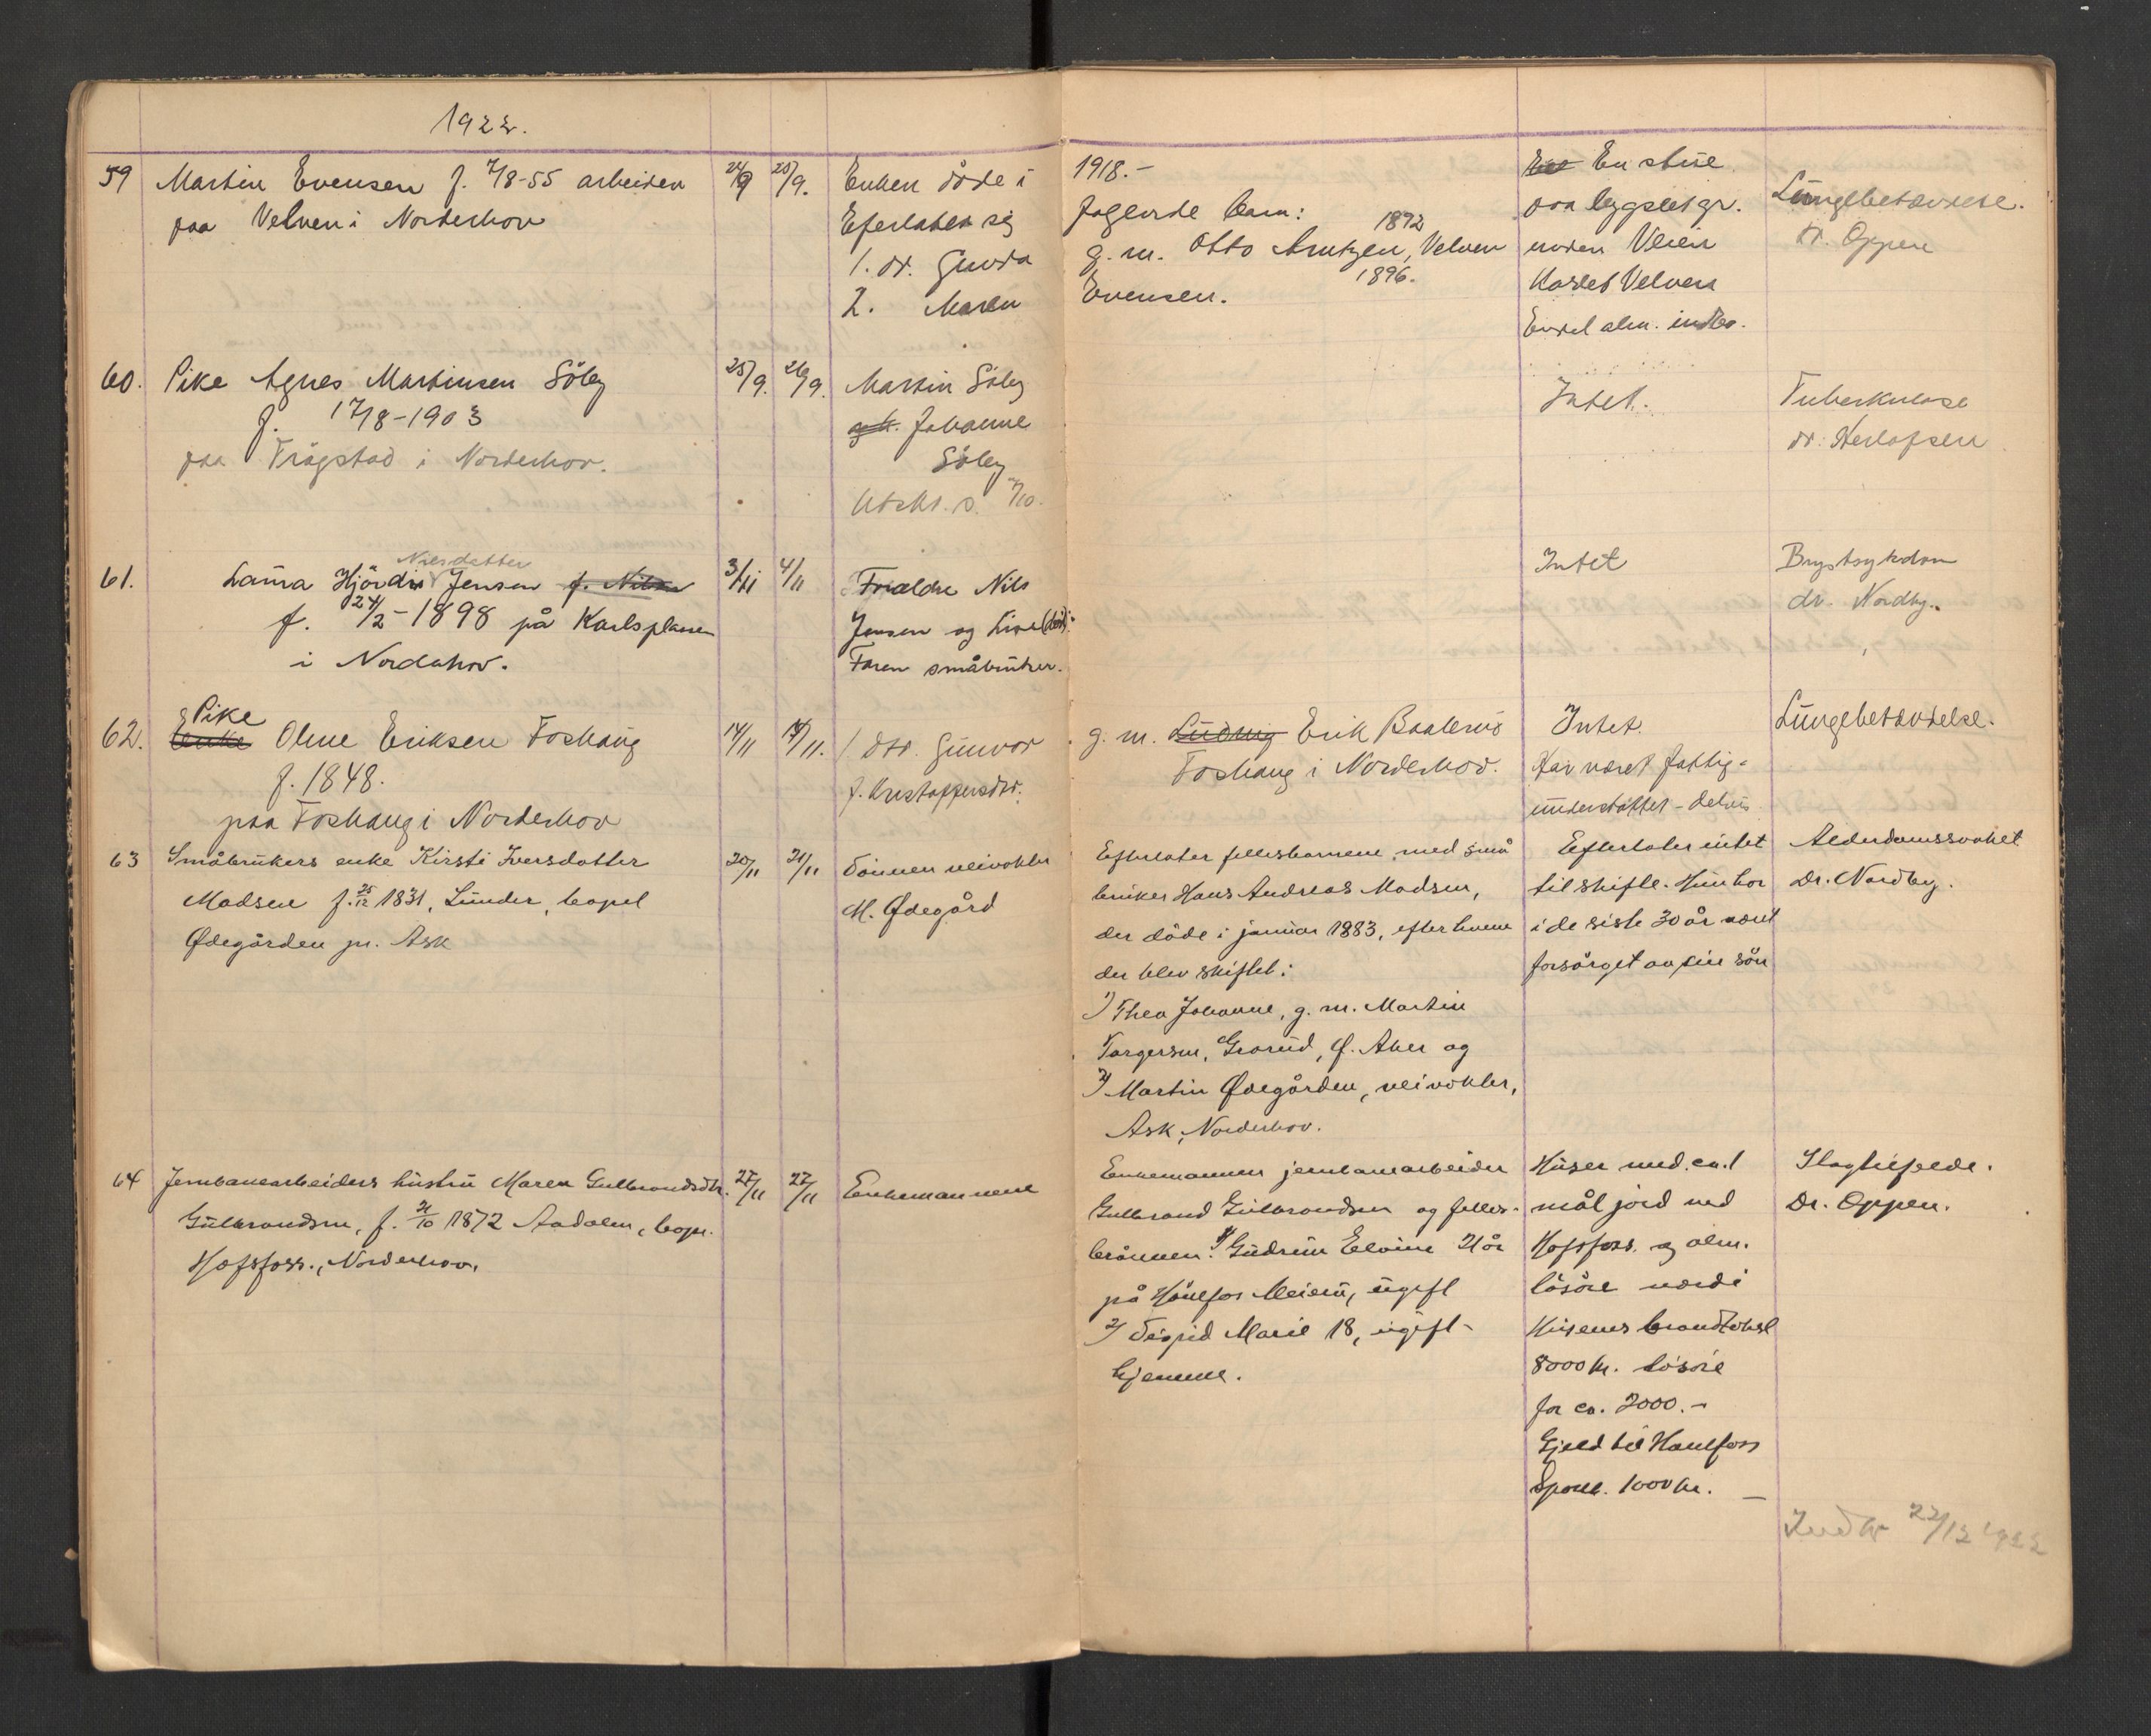 1922.
59 Martin Evensen f. 7/8-55 arbeider 24/9 25/9. Enken döde i 1918.-
paa Velven i Norderhov
Efterlater sig følgende barn:
1. dr. Gunda g. m. Otto Arntzen, Velven 1892
2. Maren Evensen. 1896.
En stue
paa bygslet gr.
under Veien
Kaslet Velven
Endel alm. indbo.
Lungebetændelse.
dr. Oppen
60. Pike Agnes Martinsen Söby 25/9. 26/9. Martin Söby
f. 17/8-1903
paa Trögstad i Norderhov.
og h. Johanne
Söby
Utskr. s. 7/10.
Intet.
Tuberkulose
dr. Herlofsen
61. Laura Hjördis Nilsdatter Jensen f. Nilsen 3/11 4/11 Forældre Nils
f. 24/2-1898 på Karlsplassen
i Norderhov.
Jensen og Lise (död).
Faren småbruker.
Intet
Brystsykdom
dr. Nordby.
62. Enke Pike Oline Eriksen Foshaug 14/11 14/11. 1 dtr. Gunvor
f. 1848.
paa Foshaug i Norderhov
f. Kristoffersdtr.
g. m. Ludvig Erik Baalerud
Foshaug i Norderhov.
Intet.
Har været fattig-
understöttet - delvis
Lungebetændelse.
63 Småbrukers enke Kirsti Iversdatter 20/11 21/11 Sönnen veivokter
Madsen f. 25/12 1831, Lunder, bopel
Ødegården pr. Ask
M. Ødegård
Efterlater fellesbarnene med små
bruker Hans Andreas Madsen,
der döde i januar 1883, efter hvem
der blev skiftet:
1) Thea Johanne, g. m. Martin
Torgersen, Grorud, Ø. Aker og
2) Martin Ødegården, veivokter,
Ask, Norderhov.
Efterlater intet
til skifte. Hun har
i de siste 30 år været
forsörget av sin sön
Alderdomssvakhet
Dr. Nordby.
64 Jernbanearbeiders hustru Maren Gulbrandsdtr. 27/11 27/11 Enkemannen
Gulbrandsen, f. 21/10 1872 Aadalen, bopel
Hofsfoss., Norderhov.
Enkemannen jernbanearbeider
Gulbrand Gulbrandsen og felles-
börnene: 1) Gudrun Elvine 21 år
på Hönefos Meieri, ugift
2) Sigrid Marie 18, ugift -
hjemme.
Huser med ca. 1
mål jord ved
Hofsfoss. og alm.
lösöre verdi
Husenes brandtakst
8000 kr. lösöre
for ca. 2000.-
Gjeld til Hönefoss
Spareb. 1000 kr. -
Slagtilfelde.
Dr. Oppen.
Indb. 22/12 1922